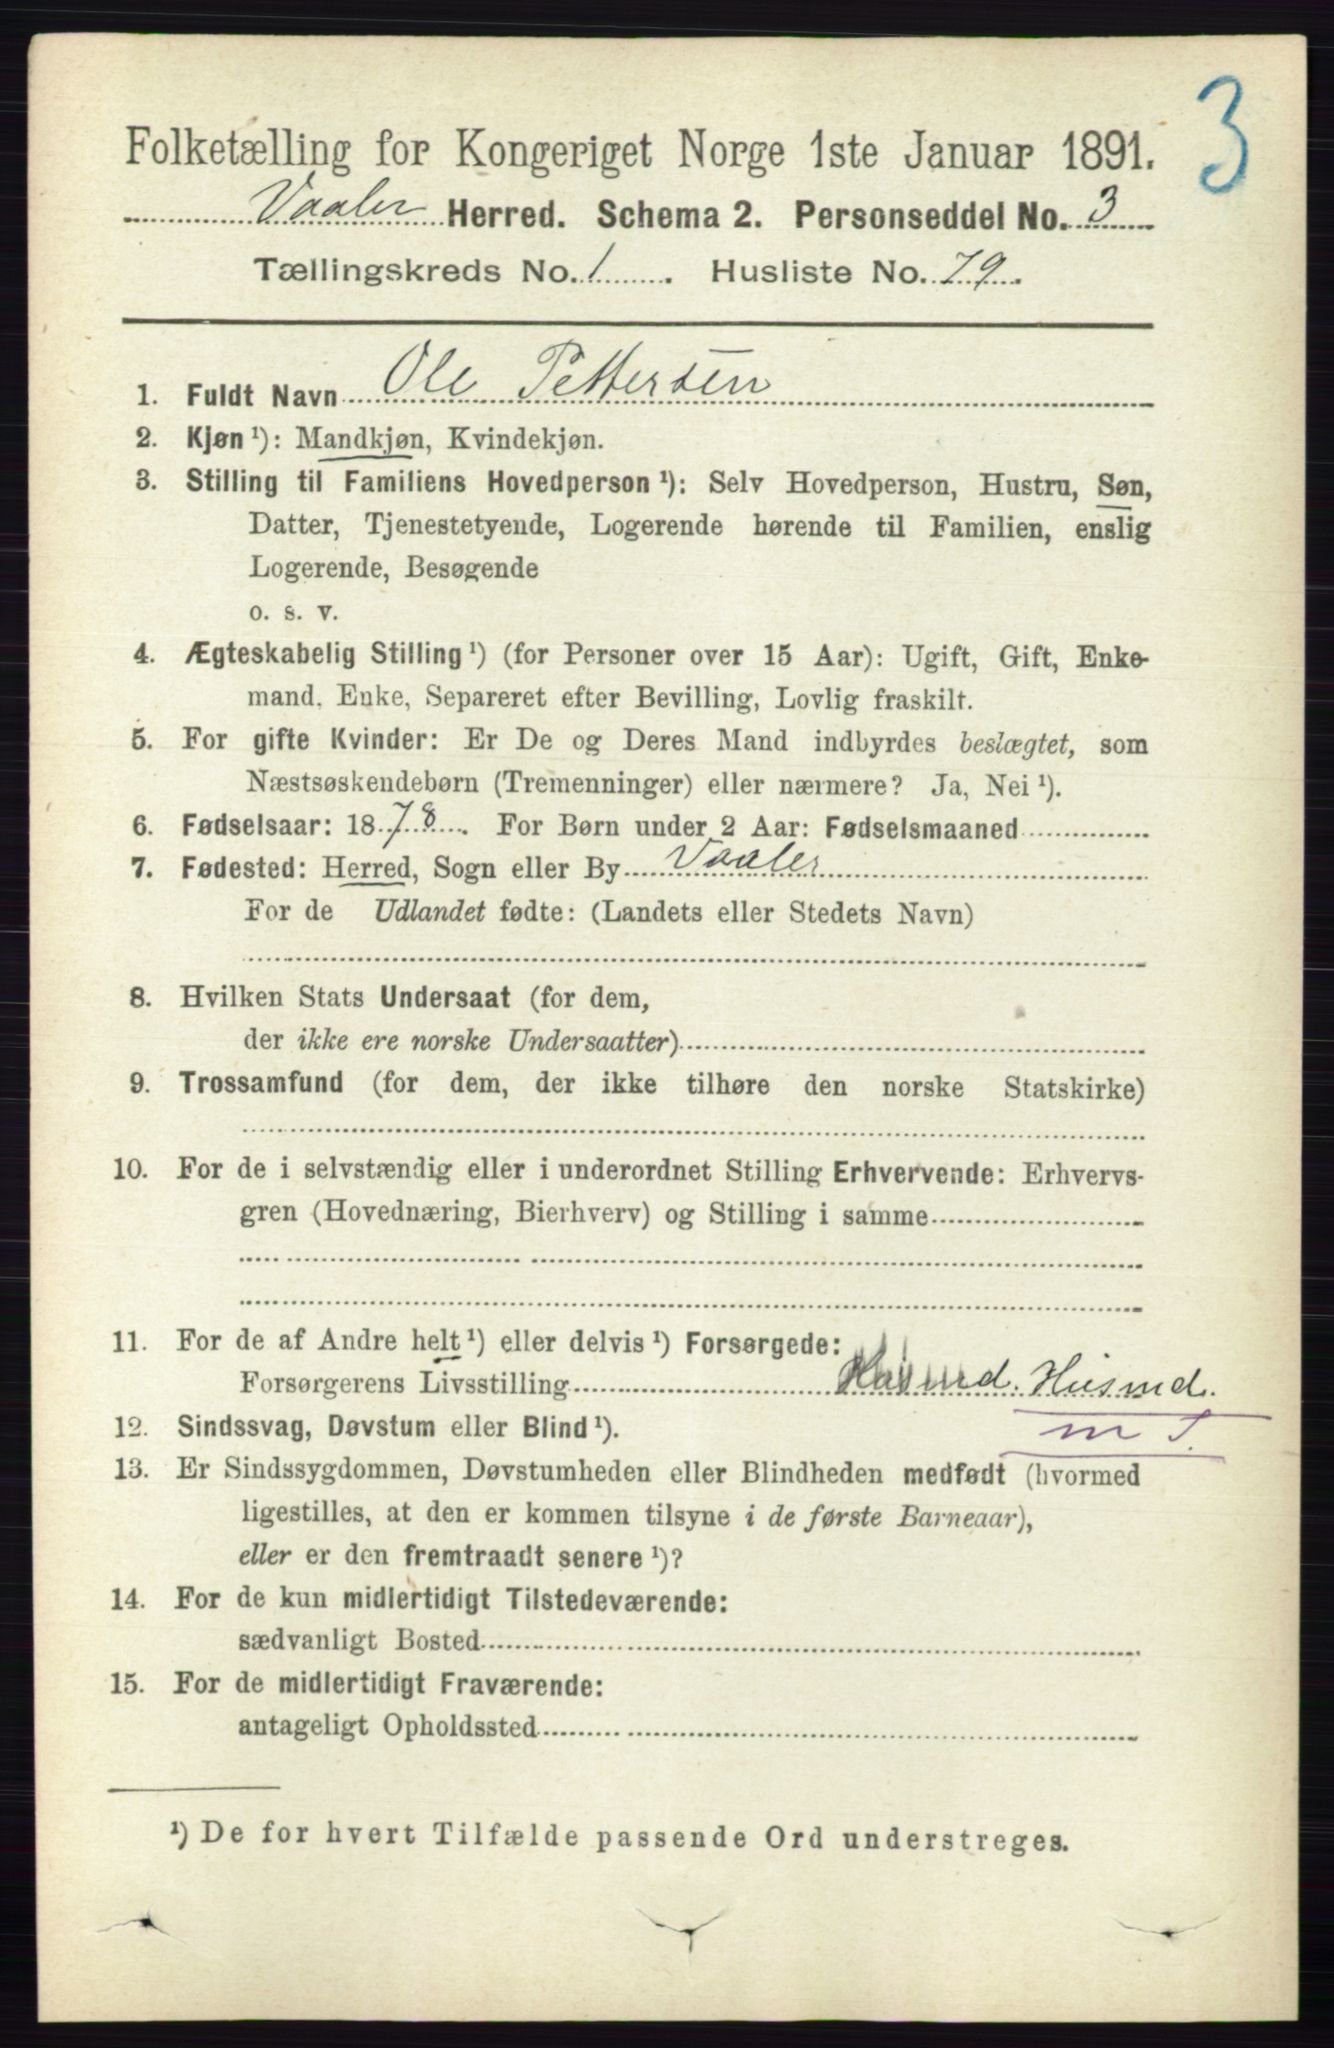 3
Folketælling for Kongeriget Norge 1ste Januar 1891.
Vaaler Herred. Schema 2. Personseddel No. 3
Tællingskreds No. 1. Husliste No. 79.
1. Fuldt Navn Ole Pettersen
2. Kjøn ¹): Mandkjøn, Kvindekjøn.
3. Stilling til Familiens Hovedperson ¹): Selv Hovedperson, Hustru, Søn,
Datter, Tjenestetyende, Logerende hørende til Familien, enslig
Logerende, Besøgende
o. s. v.
4. Ægteskabelig Stilling ¹) (for Personer over 15 Aar): Ugift, Gift, Enke-
mand, Enke, Separeret efter Bevilling, Lovlig fraskilt.
5. For gifte Kvinder: Er De og Deres Mand indbyrdes beslægtet, som
Næstsøskendebørn (Tremenninger) eller nærmere? Ja, Nei ¹).
6. Fødselsaar: 1878. For Børn under 2 Aar: Fødselsmaaned
7. Fødested: Herred, Sogn eller By Vaaler
For de Udlandet fødte: (Landets eller Stedets Navn)
8. Hvilken Stats Undersaat (for dem,
der ikke ere norske Undersaatter)
9. Trossamfund (for dem, der ikke tilhøre den norske Statskirke)
10. For de i selvstændig eller i underordnet Stilling Erhvervende: Erhvervs-
gren (Hovednæring, Bierhverv) og Stilling i samme
11. For de af Andre helt ¹) eller delvis ¹) Forsørgede:
Forsørgerens Livsstilling Husmd. Husmd.
12. Sindssvag, Døvstum eller Blind ¹). m J.
13. Er Sindssygdommen, Døvstumheden eller Blindheden medfødt (hvormed
ligestilles, at den er kommen tilsyne i de første Barneaar),
eller er den fremtraadt senere ¹)?
14. For de kun midlertidigt Tilstedeværende:
sædvanligt Bosted
15. For de midlertidigt Fraværende:
antageligt Opholdssted
¹) De for hvert Tilfælde passende Ord understreges.